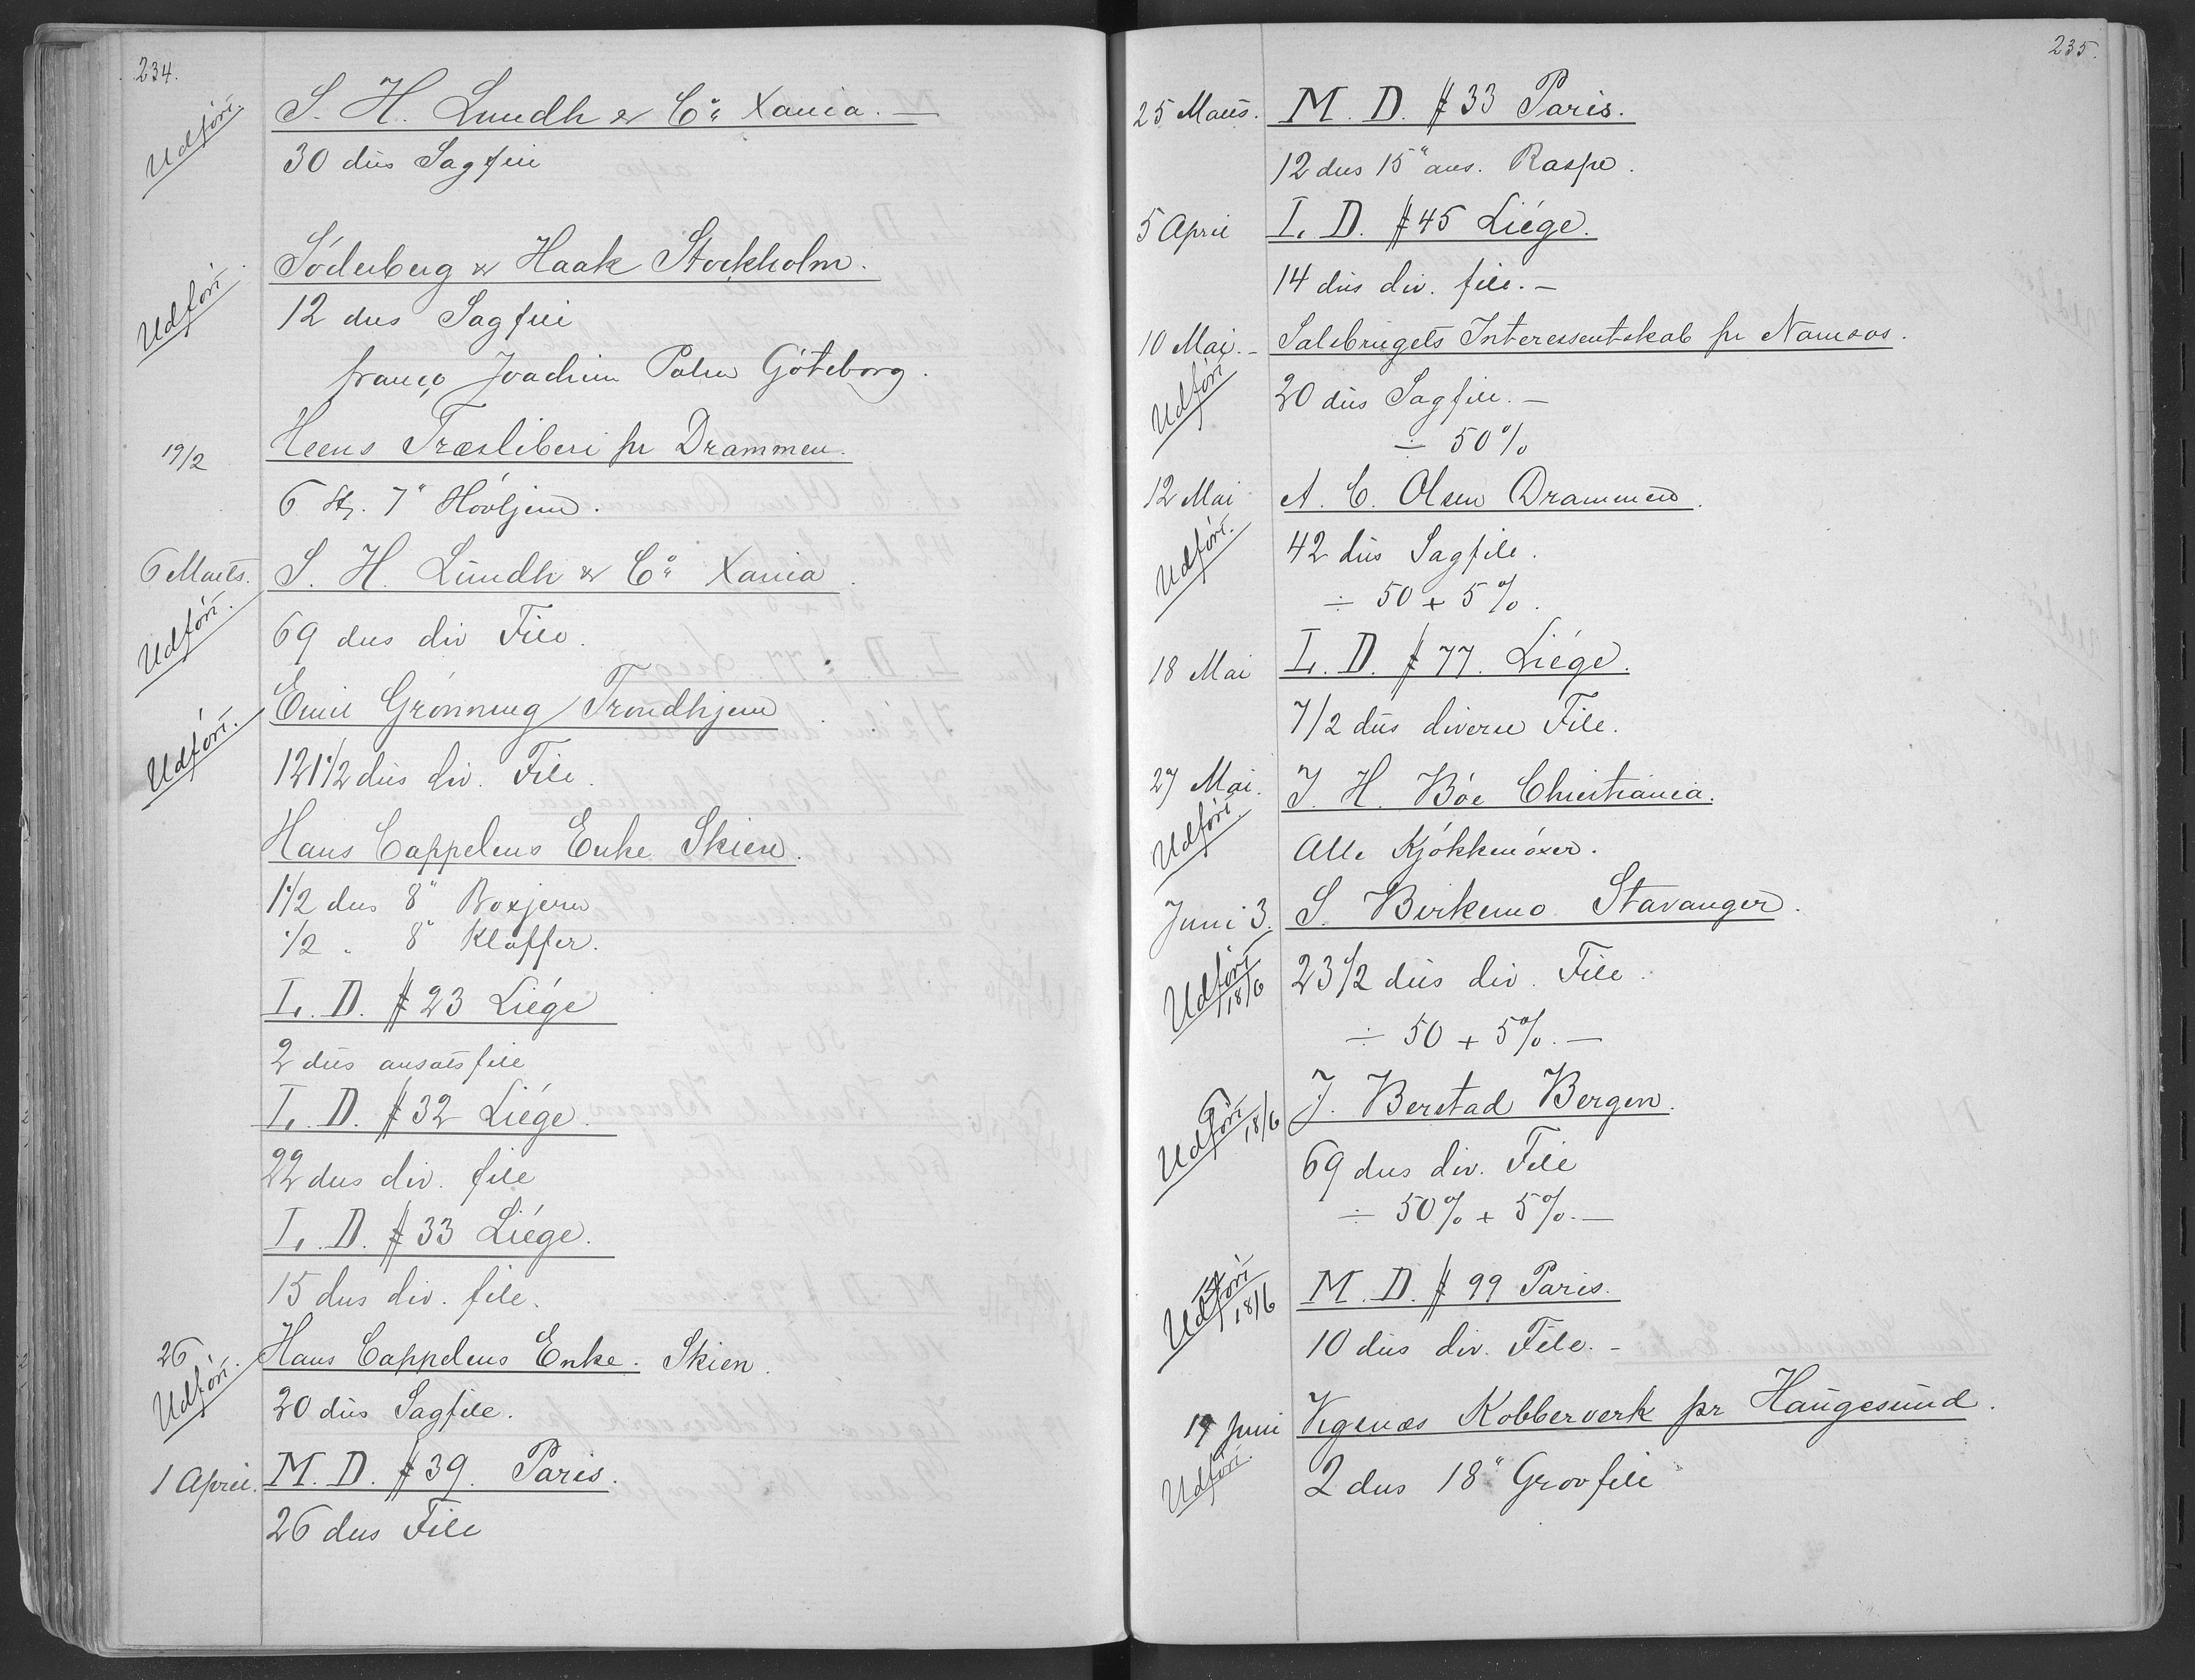 234.
Udført. S. H. Lundh & Co Xania. —
30 dus Sagfile
Udført. Söderberg & Haak Stockholm.
12 dus Sagfile
franco Joachim Palm Göteborg.
19/2 Heens Træsliberi pr Drammen.
6 st. 7" Høvljern.
6 Marts. S. H. Lundh & Co Xania.
Udført. 69 dus div File.
Udført. Emil Grønning Trondhjem
121 1/2 dus div. File.
Hans Cappelens Enke Skien.
1 1/2 dus 8" Boxjern
1/2 " 8" Kloffer.
L. D. # 23 Liége
2 dus ansatsfile
L. D. # 32 Liége.
22 dus div. file
L. D. # 33 Liége.
15 dus div. file.
26 Hans Cappelens Enke. Skien.
Udført. 20 dus Sagfile.
1 April. M. D. # 39. Paris.
26 dus File
235.
25 Marts. M. D. # 33 Paris.
12 dus 15" ans. Raspe.
5 April L. D. # 45 Liége.
14 dus div. file. —
10 Mai. - Salsbrugets Interessentskab pr Namsos.
Udført 20 dus Sagfile. —
÷ 50%
12 Mai A. C. Olsen Drammen.
Udført. 42 dus Sagfile.
÷ 50 + 5%.
18 Mai L. D. # 77. Liége.
7/2 dus diverse File.
27 Mai. J. H. Bóe Christiania.
Udført. Alle Kjøkkenøxer.
Juni 3. S. Birkemo Stavanger.
Udført 18/6 23 1/2 dus div. File.
÷ 50 + 5%. —
Udført 18/6 J. Berstad Bergen.
69 dus div. File
÷ 50% + 5%. —
Udført 18/6 M. D. # 99 Paris.
10 dus div. File. -
19 Juni Vigsnæs Kobberverk pr Haugesund.
Udført. 2 dus 18" Groofile